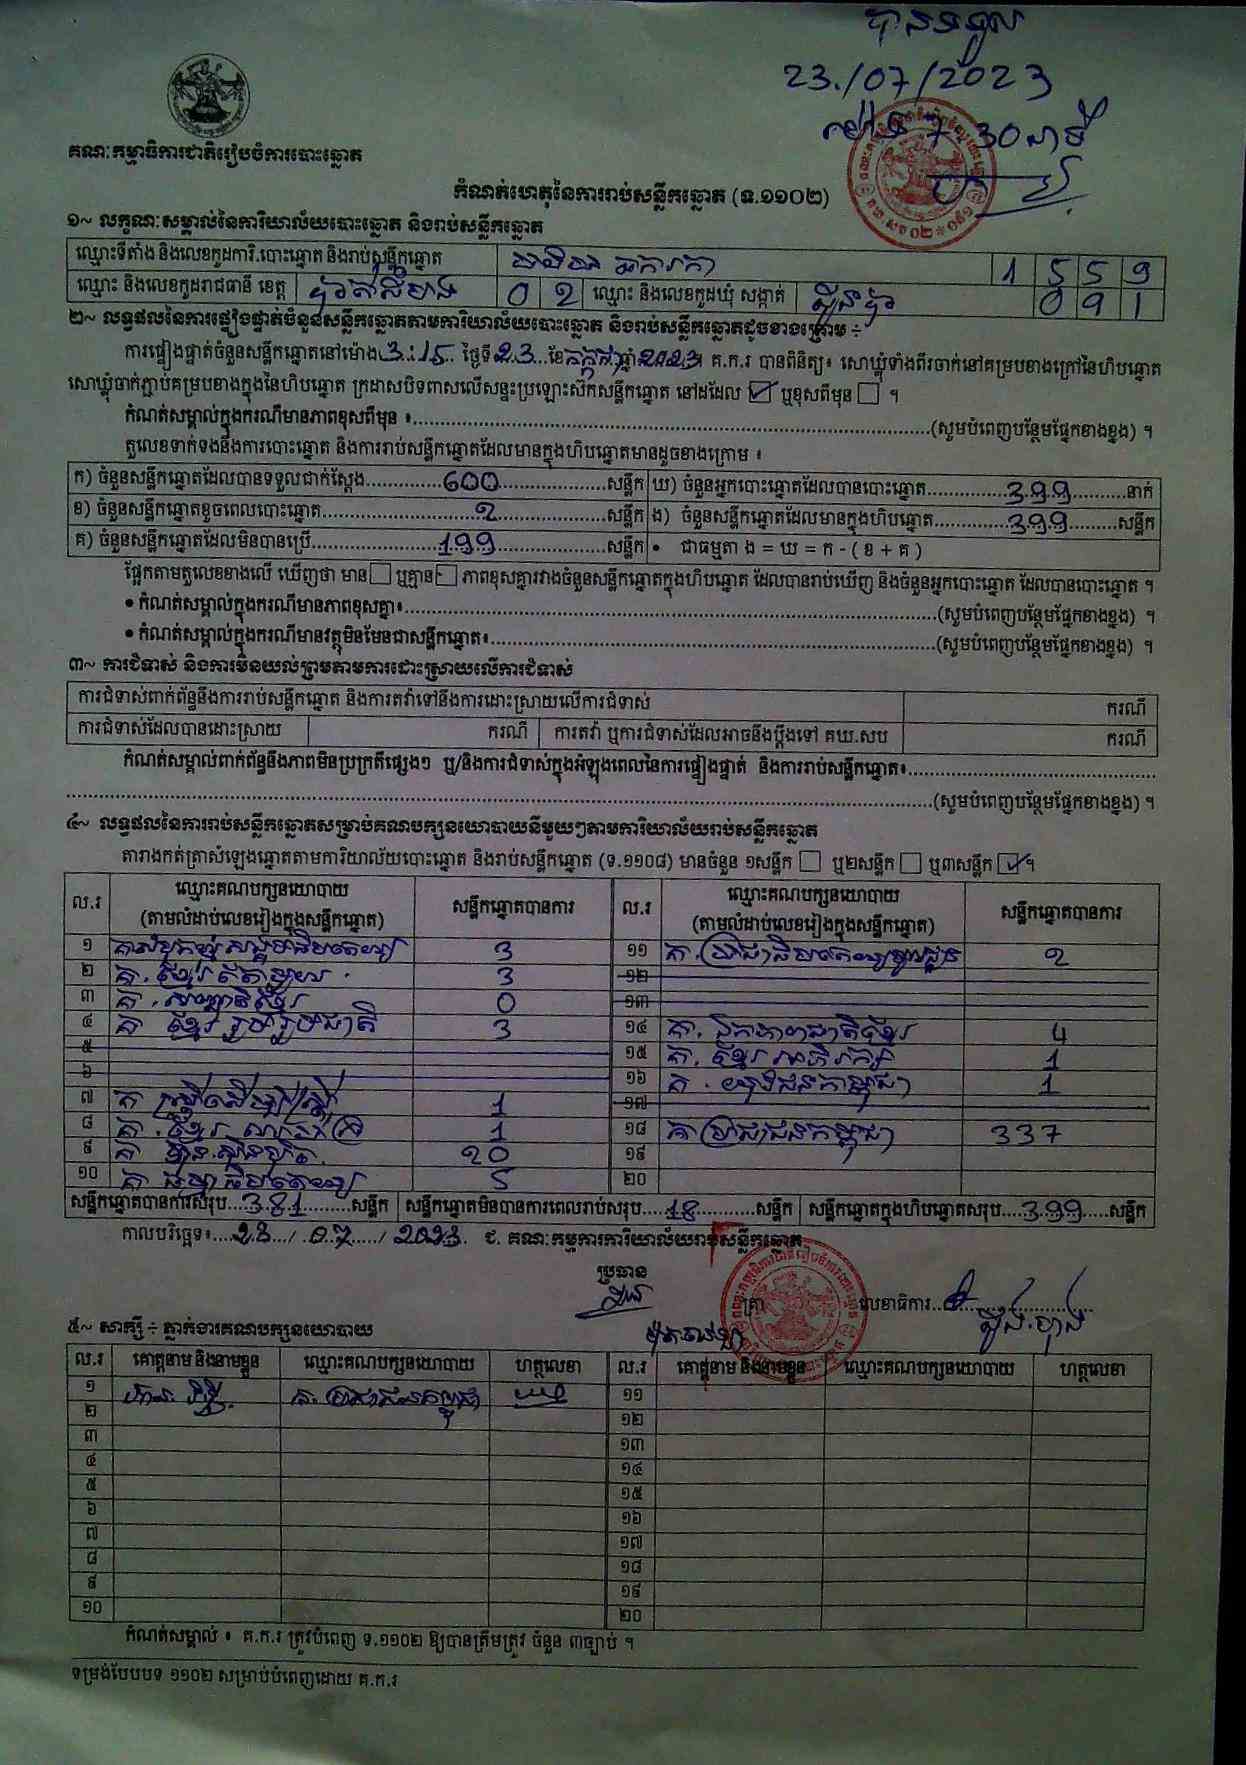 បានទទួល
23/07/2023
ម៉ោង 7 30 នាទី
គណៈកម្មាធិការជាតិរៀបចំការបោះឆ្នោត
កំណត់ហេតុនៃការរាប់សន្លឹកឆ្នោត (ទ.១១០២)
១~ លក្ខណៈសម្គាល់នៃការិយាល័យបោះឆ្នោត និងរាប់សន្លឹកឆ្នោត
ឈ្មោះទីតាំង និងលេខកូដការិ.បោះឆ្នោត និងរាប់សន្លឹកឆ្នោត 1 5 5 9
ឈ្មោះ និងលេខកូដរាជធានី ខេត្ត បាត់ដំបង 0 2 ឈ្មោះ និងលេខកូដឃុំ សង្កាត់ 0 9 1
២~ លទ្ធផលនៃការផ្ទៀងផ្ទាត់ចំនួនសន្លឹកឆ្នោតតាមការិយាល័យបោះឆ្នោត និងរាប់សន្លឹកឆ្នោតដូចខាងក្រោម ÷
ការផ្ទៀងផ្ទាត់ចំនួនសន្លឹកឆ្នោតនៅម៉ោង 3:15 ថ្ងៃទី 23 ខែ កក្កដា ឆ្នាំ 2023 ។ គ.ក.រ បានពិនិត្យ៖ សោឃ្លុំទាំងពីរចាក់នៅគម្របខាងក្រៅនៃហិបឆ្នោត
សោឃ្លុំចាក់ភ្ជាប់គម្របខាងក្នុងនៃហិបឆ្នោត ក្រដាសបិទពាសលើសន្ទះប្រឡោះស៊កសន្លឹកឆ្នោត នៅដដែល ☑ ឬខុសពីមុន ☐ ។
កំណត់សម្គាល់ក្នុងករណីមានភាពខុសពីមុន ៖ (សូមបំពេញបន្ថែមផ្នែកខាងខ្នង) ។
តួលេខទាក់ទងនឹងការបោះឆ្នោត និងការរាប់សន្លឹកឆ្នោតដែលមានក្នុងហិបឆ្នោតមានដូចខាងក្រោម ៖
ក) ចំនួនសន្លឹកឆ្នោតដែលបានទទួលជាក់ស្តែង 600 សន្លឹក ឃ) ចំនួនអ្នកបោះឆ្នោតដែលបានបោះឆ្នោត 399 នាក់
ខ) ចំនួនសន្លឹកឆ្នោតខូចពេលបោះឆ្នោត 2 សន្លឹក ង) ចំនួនសន្លឹកឆ្នោតដែលមានក្នុងហិបឆ្នោត 399 សន្លឹក
គ) ចំនួនសន្លឹកឆ្នោតដែលមិនបានប្រើ 199 សន្លឹក • ជាធម្មតា ង = ឃ = ក - ( ខ + គ )
ផ្អែកតាមតួលេខខាងលើ ឃើញថា មាន ☐ ឬគ្មាន ☑ ភាពខុសគ្នារវាងចំនួនសន្លឹកឆ្នោតក្នុងហិបឆ្នោត ដែលបានរាប់ឃើញ និងចំនួនអ្នកបោះឆ្នោត ដែលបានបោះឆ្នោត ។
• កំណត់សម្គាល់ក្នុងករណីមានភាពខុសគ្នា៖ (សូមបំពេញបន្ថែមផ្នែកខាងខ្នង) ។
• កំណត់សម្គាល់ក្នុងករណីមានវត្ថុមិនមែនជាសន្លឹកឆ្នោត៖ (សូមបំពេញបន្ថែមផ្នែកខាងខ្នង) ។
៣~ ការជំទាស់ និងការមិនយល់ព្រមតាមការដោះស្រាយលើការជំទាស់
ការជំទាស់ពាក់ព័ន្ធនឹងការរាប់សន្លឹកឆ្នោត និងការតវ៉ាទៅនឹងការដោះស្រាយលើការជំទាស់ ករណី
ការជំទាស់ដែលបានដោះស្រាយ ករណី ការតវ៉ា ឬការជំទាស់ដែលអាចនឹងប្តឹងទៅ គឃ.សប ករណី
កំណត់សម្គាល់ពាក់ព័ន្ធនឹងភាពមិនប្រក្រតីផ្សេងៗ ឬ/និងការជំទាស់ក្នុងអំឡុងពេលនៃការផ្ទៀងផ្ទាត់ និងការរាប់សន្លឹកឆ្នោត៖
(សូមបំពេញបន្ថែមផ្នែកខាងខ្នង) ។
៤~ លទ្ធផលនៃការរាប់សន្លឹកឆ្នោតសម្រាប់គណបក្សនយោបាយនីមួយៗតាមការិយាល័យរាប់សន្លឹកឆ្នោត
តារាងកត់ត្រាសំឡេងឆ្នោតតាមការិយាល័យបោះឆ្នោត និងរាប់សន្លឹកឆ្នោត (ទ.១១០៨) មានចំនួន ១សន្លឹក ☐ ឬ២សន្លឹក ☐ ឬ៣សន្លឹក ☑ ។
ល.រ ឈ្មោះគណបក្សនយោបាយ (តាមលំដាប់លេខរៀងក្នុងសន្លឹកឆ្នោត) សន្លឹកឆ្នោតបានការ ល.រ ឈ្មោះគណបក្សនយោបាយ (តាមលំដាប់លេខរៀងក្នុងសន្លឹកឆ្នោត) សន្លឹកឆ្នោតបានការ
១ 3 ១១ 2
២ 3 ១២
៣ 0 ១៣
៤ គ ខ្មែររួបរួមជាតិ 3 ១៤ គ. ឯកភាពជាតិខ្មែរ 4
៥ ១៥ គ. ខ្មែរអភិរក្ស 1
៦ ១៦ គ. យុវជនកម្ពុជា 1
៧ គ ស្ត្រីដើម្បីស្ត្រី 1 ១៧
៨ 1 ១៨ គ ប្រជាជនកម្ពុជា 337
៩ គ ហ្វ៊ុនស៊ិនប៉ិច 20 ១៩
១០ គ ធម្មាធិបតេយ្យ 5 ២០
សន្លឹកឆ្នោតបានការសរុប 381 សន្លឹក សន្លឹកឆ្នោតមិនបានការពេលរាប់សរុប 18 សន្លឹក សន្លឹកឆ្នោតក្នុងហិបឆ្នោតសរុប 399 សន្លឹក
កាលបរិច្ឆេទ៖ 23 / 07 / 2023 ជ. គណៈកម្មការការិយាល័យរាប់សន្លឹកឆ្នោត
ប្រធាន
លេខាធិការ
៥~ សាក្សី ÷ ភ្នាក់ងារគណបក្សនយោបាយ
ល.រ គោត្តនាម និងនាមខ្លួន ឈ្មោះគណបក្សនយោបាយ ហត្ថលេខា ល.រ គោត្តនាម និងនាមខ្លួន ឈ្មោះគណបក្សនយោបាយ ហត្ថលេខា
១ គ. ប្រជាជនកម្ពុជា ១១
២ ១២
៣ ១៣
៤ ១៤
៥ ១៥
៦ ១៦
៧ ១៧
៨ ១៨
៩ ១៩
១០ ២០
កំណត់សម្គាល់ ៖ គ.ក.រ ត្រូវបំពេញ ទ.១១០២ ឱ្យបានត្រឹមត្រូវ ចំនួន ៣ច្បាប់ ។
ទម្រង់បែបបទ ១១០២ សម្រាប់បំពេញដោយ គ.ក.រ